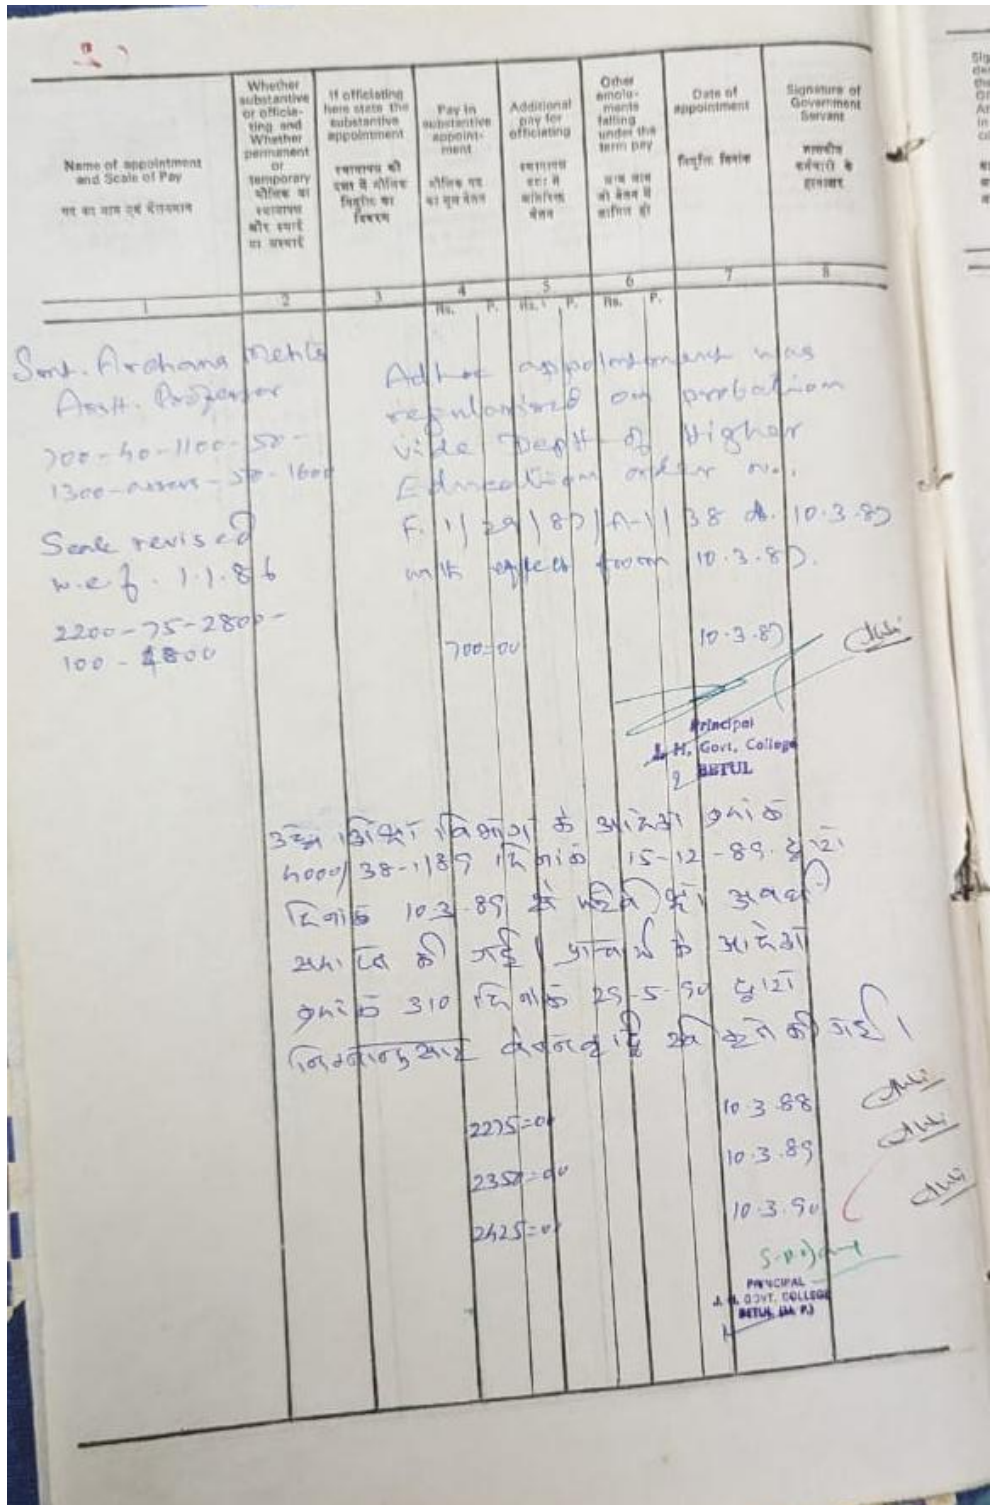 Name of appointment
and Scale of Pay
पद का नाम एवं वेतनमान
Whether
substantive
or officia-
ting and
Whether
permanent
or
temporary
मौलिक या
स्थानापन्न
और स्थाई
या अस्थाई
If officiating
here state the
substantive
appointment
स्थानापन्न की
दशा में मौलिक
नियुक्ति का
विवरण
Pay in
substantive
appoint-
ment
मौलिक पद
का मूल वेतन
Additional
pay for
officiating
स्थानापन्न
अतिरिक्त
वेतन
Other
emolu-
ments
falling
under the
term pay
अन्य लाभ
जो वेतन में
शामिल हो
Date of
appointment
नियुक्ति दिनांक
Signature of
Government
Servant
शासकीय
कर्मचारी के
हस्ताक्षर
1 2 3 4 5 6 7 8
Rs. P. Rs. P. Rs. P.
Smt. Archana Mehta
Asstt. Professor
700-40-1100-50-
1300-assess-50-1600
Scale revised
w.e.f. 1.1.86
2200-75-2800-
100-4000
Adhoc appointment was
regularised on probation
vide Deptt. of Higher
Education order no.
F. 1/29/87/A-1/38 dt. 10.3.87
with effect from 10.3.87.
700=00 10.3.87
Principal
J. H. Govt. College
BETUL
उच्च शिक्षा विभाग के आदेश क्रमांक
4000/38-1/89 दिनांक 15-12-89 द्वारा
दिनांक 10.3.89 से परिवीक्षा अवधि
समाप्त की गई। प्राचार्य के आदेश
क्रमांक 310 दिनांक 29-5-90 द्वारा
निम्नानुसार वेतनवृद्धि स्वीकृत की गई।
2275=00 10.3.88
2350=00 10.3.89
2425=00 10.3.90
PRINCIPAL
J. H. GOVT. COLLEGE
BETUL (M. P.)